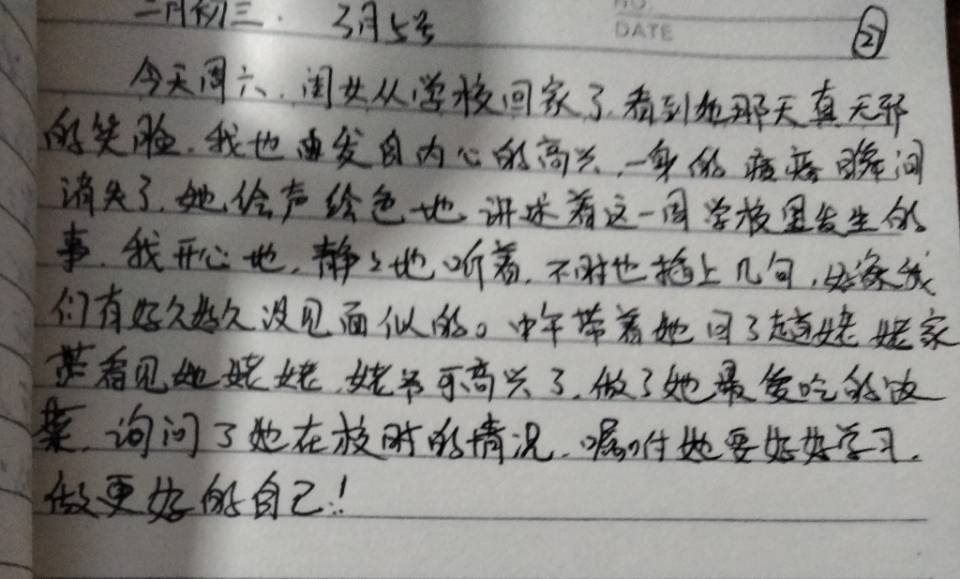 二月初三. 3月5号
NO.
DATE
②
今天周六、闺女从学校回家了,看到她那天真无邪
的笑脸,我也由发自内心的高兴,一身的疲惫瞬间
消失了,她绘声绘色地讲述着这一周学校里发生的
事,我开心地,静静地听着,不时也插上几句,好像我
们有好久好久没见面似的。中午带着她回了趟姥姥家
看见她姥姥 姥爷可高兴了,做了她最爱吃的
菜,询问了她在校时的情况,嘱咐她要好好学习,
做更好的自己!